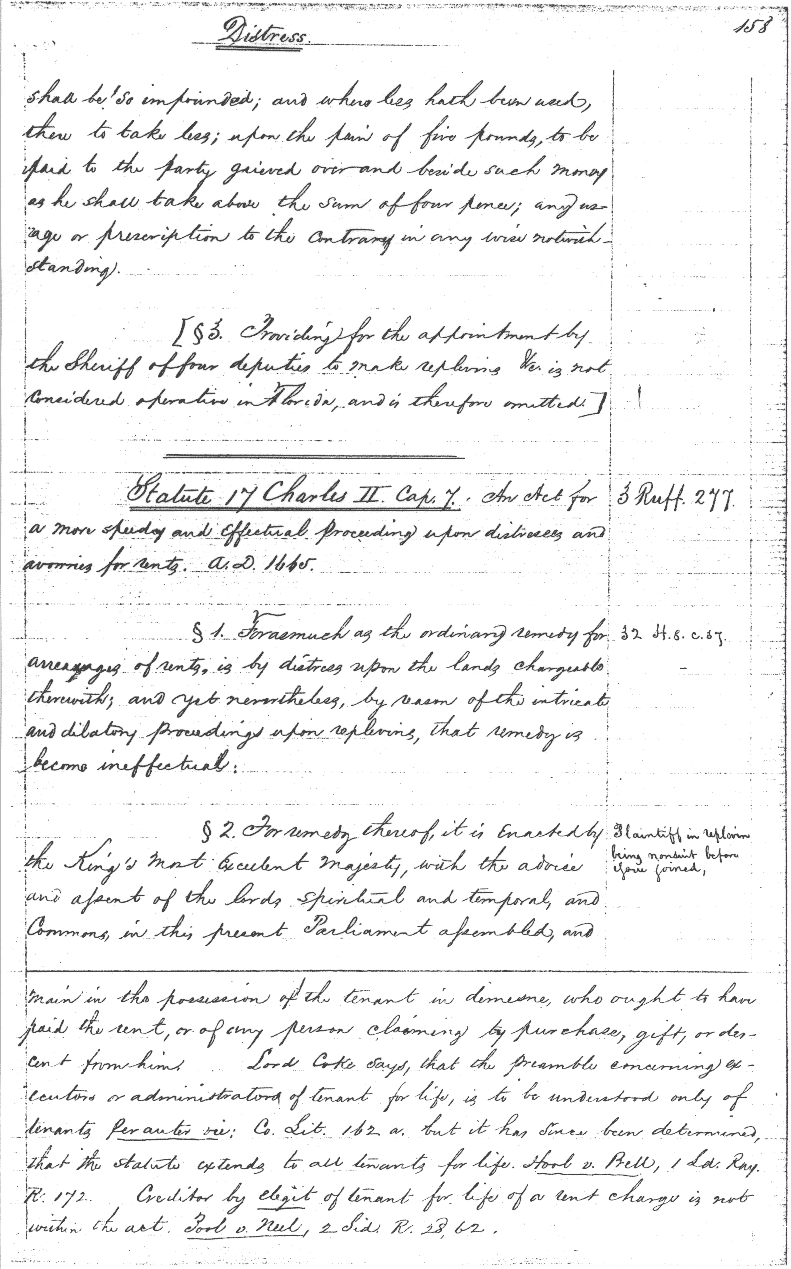 Distress.
158
shall be so impounded; and where less hath been used,
there to take less; upon the pain of five pounds, to be
paid to the party grieved over and beside such money
as he shall take above the sum of four pence; any us-
age or prescription to the contrary in any wise notwith-
standing.
[§ 3. Providing for the appointment by
the Sheriff of four deputies to make replevins &c. is not
considered operative in Florida, and is therefore omitted.]
Statute 17 Charles II. Cap. 7. An Act for
3 Ruff. 277.
a more speedy and effectual Proceeding upon distresses and
avowries for rents. A.D. 1665.
§ 1. Forasmuch as the ordinary remedy for
32 H. 8. c. 37.
arrearages of rents, is by distress upon the lands chargeable
therewith; and yet nevertheless, by reason of the intricate
and dilatory Proceedings upon replevins, that remedy is
become ineffectual:
§ 2. For remedy thereof, it is Enacted by
Plaintiff in replevin
being nonsuit before
issue joined,
the King's Most Excelent Majesty, with the advise
and assent of the lords spiritual and temporal, and
Commons, in this present Parliament assembled, and
main in the possession of the tenant in demesne, who ought to have
paid the rent, or of any person claiming by purchase, gift, or des-
cent from him. Lord Coke says, that the preamble concerning ex-
ecutors or administrators of tenant for life, is to be understood only of
tenants per auter vie: Co. Lit. 162 a. but it has since been determined,
that the statute extends to all tenants for life. Hool v. Bell, 1 Ld. Ray.
R. 172. Creditor by elegit of tenant for life of a rent charge is not
within the act. Pool v. Neel, 2 Sid. R. 28, 62.